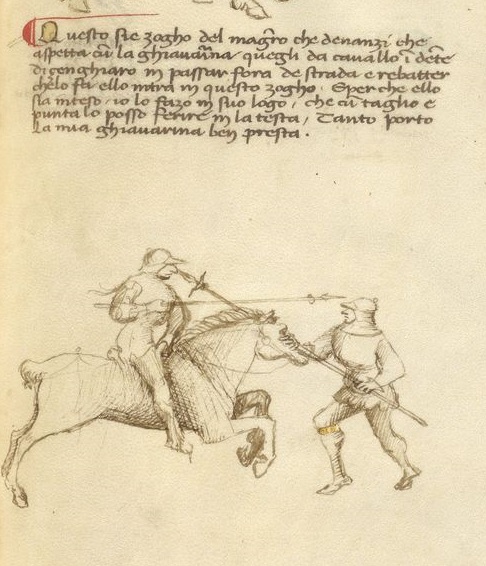 Questo sie zogho del magro che denanzi che
aspetta cū la ghiavarina quegli da cavallo ī dete
di cenghiaro in passar fora de strada e rebatter
chelo fa ello intra in questo zogho. E perche ello
sia inteso, io lo fazo in suo logo, che cū taglio e
punta lo posso ferire in la testa, Tanto porto
La mia ghiavarina ben presta.